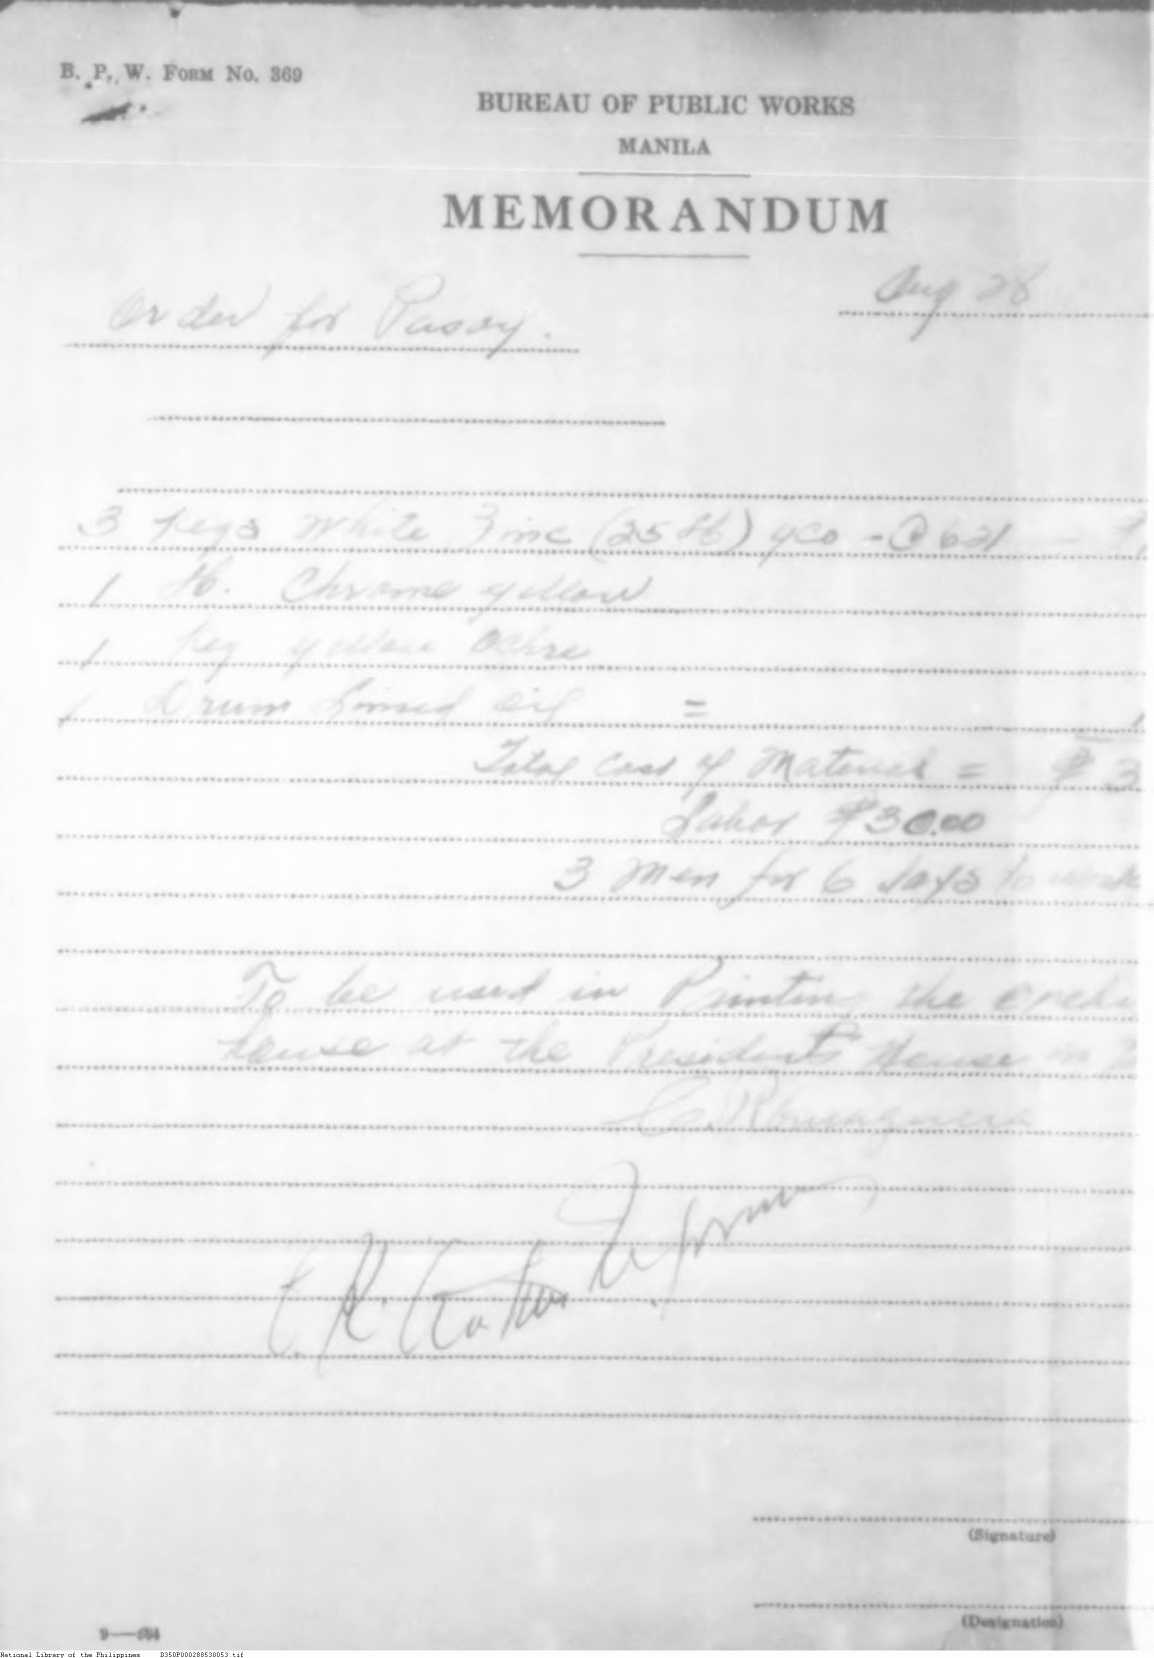 B. P. W. FORM NO. 369
BUREAU OF PUBLIC WORKS
MANILA
MEMORANDUM
Aug 28
Order for Pasay.
3 kegs White Zinc (25 lb) yco - @ 621 - ₱
1 lb. Chrome yellow
1 keg yellow Ochre
1 Drum Linseed Oil =
Total cost of Material = ₱ 3
Labor ₱30.00
3 Men for 6 days to work
To be used in Painting the
house at the President's House in
(Signature)
(Designation)
National Library of the Philippines